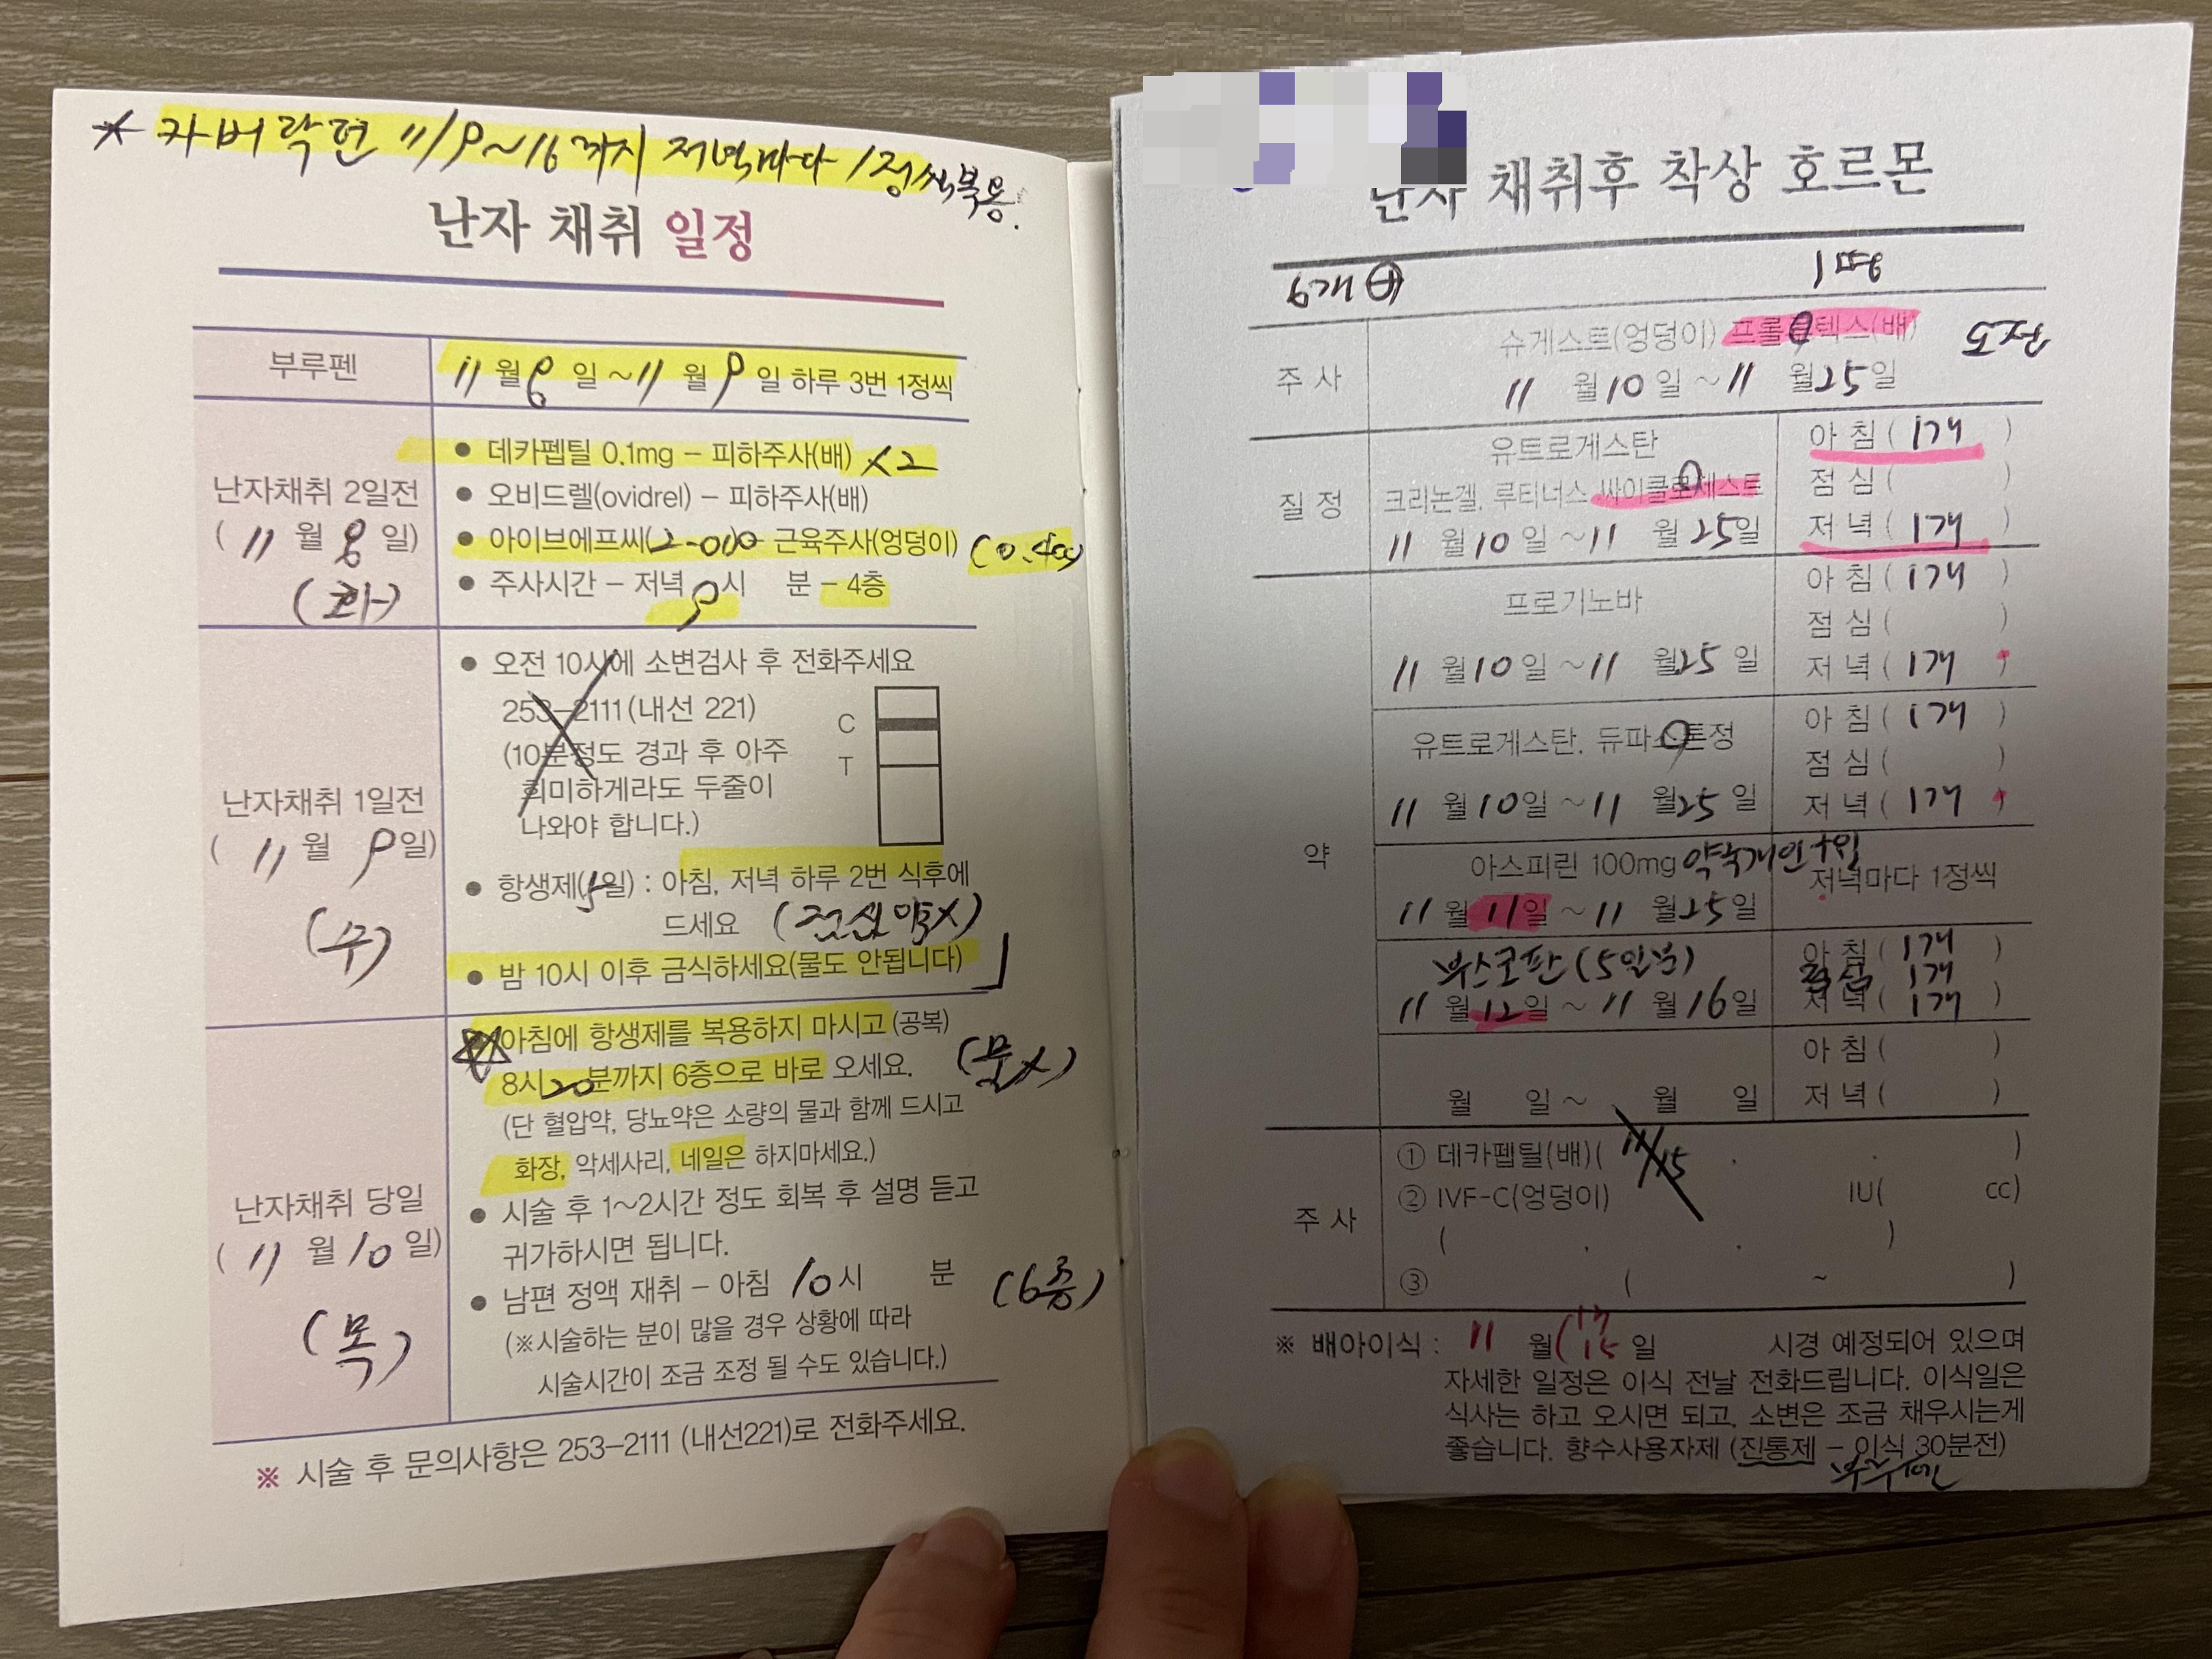 * 카버락틴 11/9~16까지 저녁마다 1정씩 복용.
난자 채취 일정
부루펜
11월 8일 ~ 11월 9일 하루 3번 1정씩
난자채취 2일전
( 11월 8일)
(화)
● 데카펩틸 0.1mg – 피하주사(배) ×2
● 오비드렐(ovidrel) – 피하주사(배)
● 아이브에프씨( 근육주사(엉덩이)
● 주사시간 – 저녁 9시 분 – 4층
난자채취 1일전
( 11월 9일)
(수)
● 오전 10시에 소변검사 후 전화주세요
253–2111(내선 221)
(10분정도 경과 후 아주
희미하게라도 두줄이
나와야 합니다.)
C
T
● 항생제(5일) : 아침, 저녁 하루 2번 식후에
드세요 (점심약×)
● 밤 10시 이후 금식하세요(물도 안됩니다)
난자채취 당일
( 11월 10일)
(목)
아침에 항생제를 복용하지 마시고 (공복)
8시 20분까지 6층으로 바로 오세요. (물×)
(단 혈압약, 당뇨약은 소량의 물과 함께 드시고
화장, 악세사리, 네일은 하지마세요.)
● 시술 후 1~2시간 정도 회복 후 설명 듣고
귀가하시면 됩니다.
● 남편 정액 재취 – 아침 10시 분 (6층)
(※시술하는 분이 많을 경우 상황에 따라
시술시간이 조금 조정 될 수도 있습니다.)
※ 시술 후 문의사항은 253–2111 (내선221)로 전화주세요.
난자 채취후 착상 호르몬
주 사
슈게스트(엉덩이) 프롤루텍스(배)
11월 10일 ~ 11월 25일
질 정
유트로게스탄
크리논겔, 루티너스 싸이클로제스트
11월 10일 ~ 11월 25일
아 침 ( 1개 )
점 심 ( )
저 녁 ( 1개 )
약
프로기노바
11월 10일 ~ 11월 25일
아 침 ( 1개 )
점 심 ( )
저 녁 ( 1개 )
유트로게스탄, 듀파스톤정
11월 10일 ~ 11월 25일
아 침 ( 1개 )
점 심 ( )
저 녁 ( 1개 )
아스피린 100mg 약국개인구입
11월 11일 ~ 11월 25일
저녁마다 1정씩
부스코판 (5일분)
11월 12일 ~ 11월 16일
아 침 ( 1개 )
점심 1개
저 녁 ( 1개 )
월 일 ~ 월 일
아 침 ( )
저 녁 ( )
주 사
① 데카펩틸(배)( 11/15 )
② IVF-C(엉덩이) IU( cc)
( . . )
③ ( ~ )
※ 배아이식 : 11월 15일 시경 예정되어 있으며
자세한 일정은 이식 전날 전화드립니다. 이식일은
식사는 하고 오시면 되고, 소변은 조금 채우시는게
좋습니다. 향수사용자제 (진통제 – 이식 30분전)
부루펜